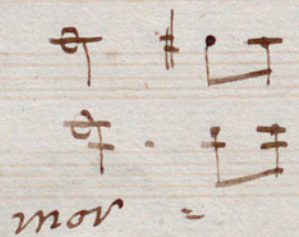 mor =